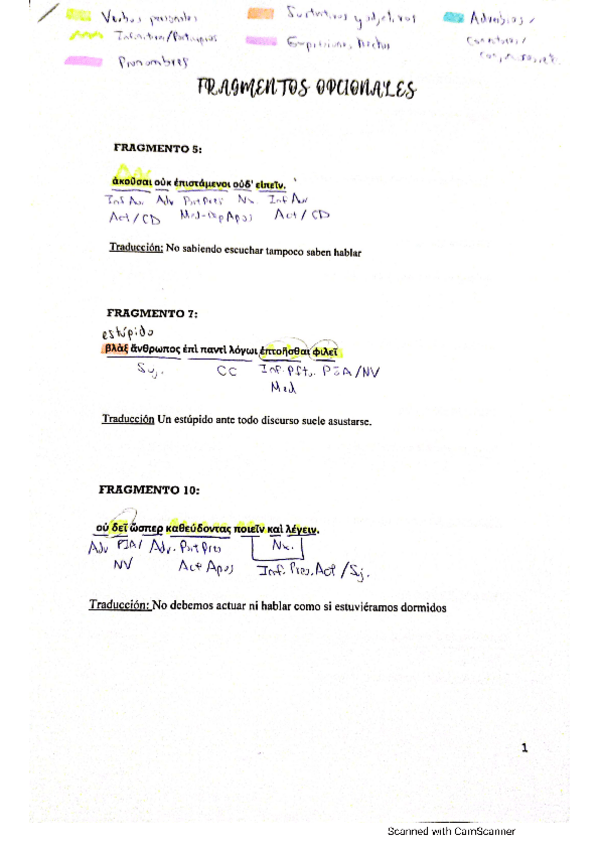 Verbos personales
Sustantivos y adjetivos
Adverbios /
Infinitivos/Participios
Expresiones, Nextos
Pronombres
FRAGMENTOS OPCIONALES
FRAGMENTO 5:
ἀκοῦσαι οὐκ ἐπιστάμενοι οὐδ' εἰπεῖν.
Inf Aor Adv Part Pres Nx. Inf Aor
Act / CD Med-Pap Apos Act / CD
Traducción: No sabiendo escuchar tampoco saben hablar
FRAGMENTO 7:
estúpido
βλὰξ ἄνθρωπος ἐπὶ παντὶ λόγωι ἐπτοῆσθαι φιλεῖ
Suj. CC Inf. Pft. P3A/NV
Med
Traducción Un estúpido ante todo discurso suele asustarse.
FRAGMENTO 10:
οὐ δεῖ ὥσπερ καθεύδοντας ποιεῖν καὶ λέγειν.
Adv PIA/ Adv. Part Pres Nx.
NV Act Apos Inf. Pres. Act / Sj.
Traducción: No debemos actuar ni hablar como si estuviéramos dormidos
1
Scanned with CamScanner